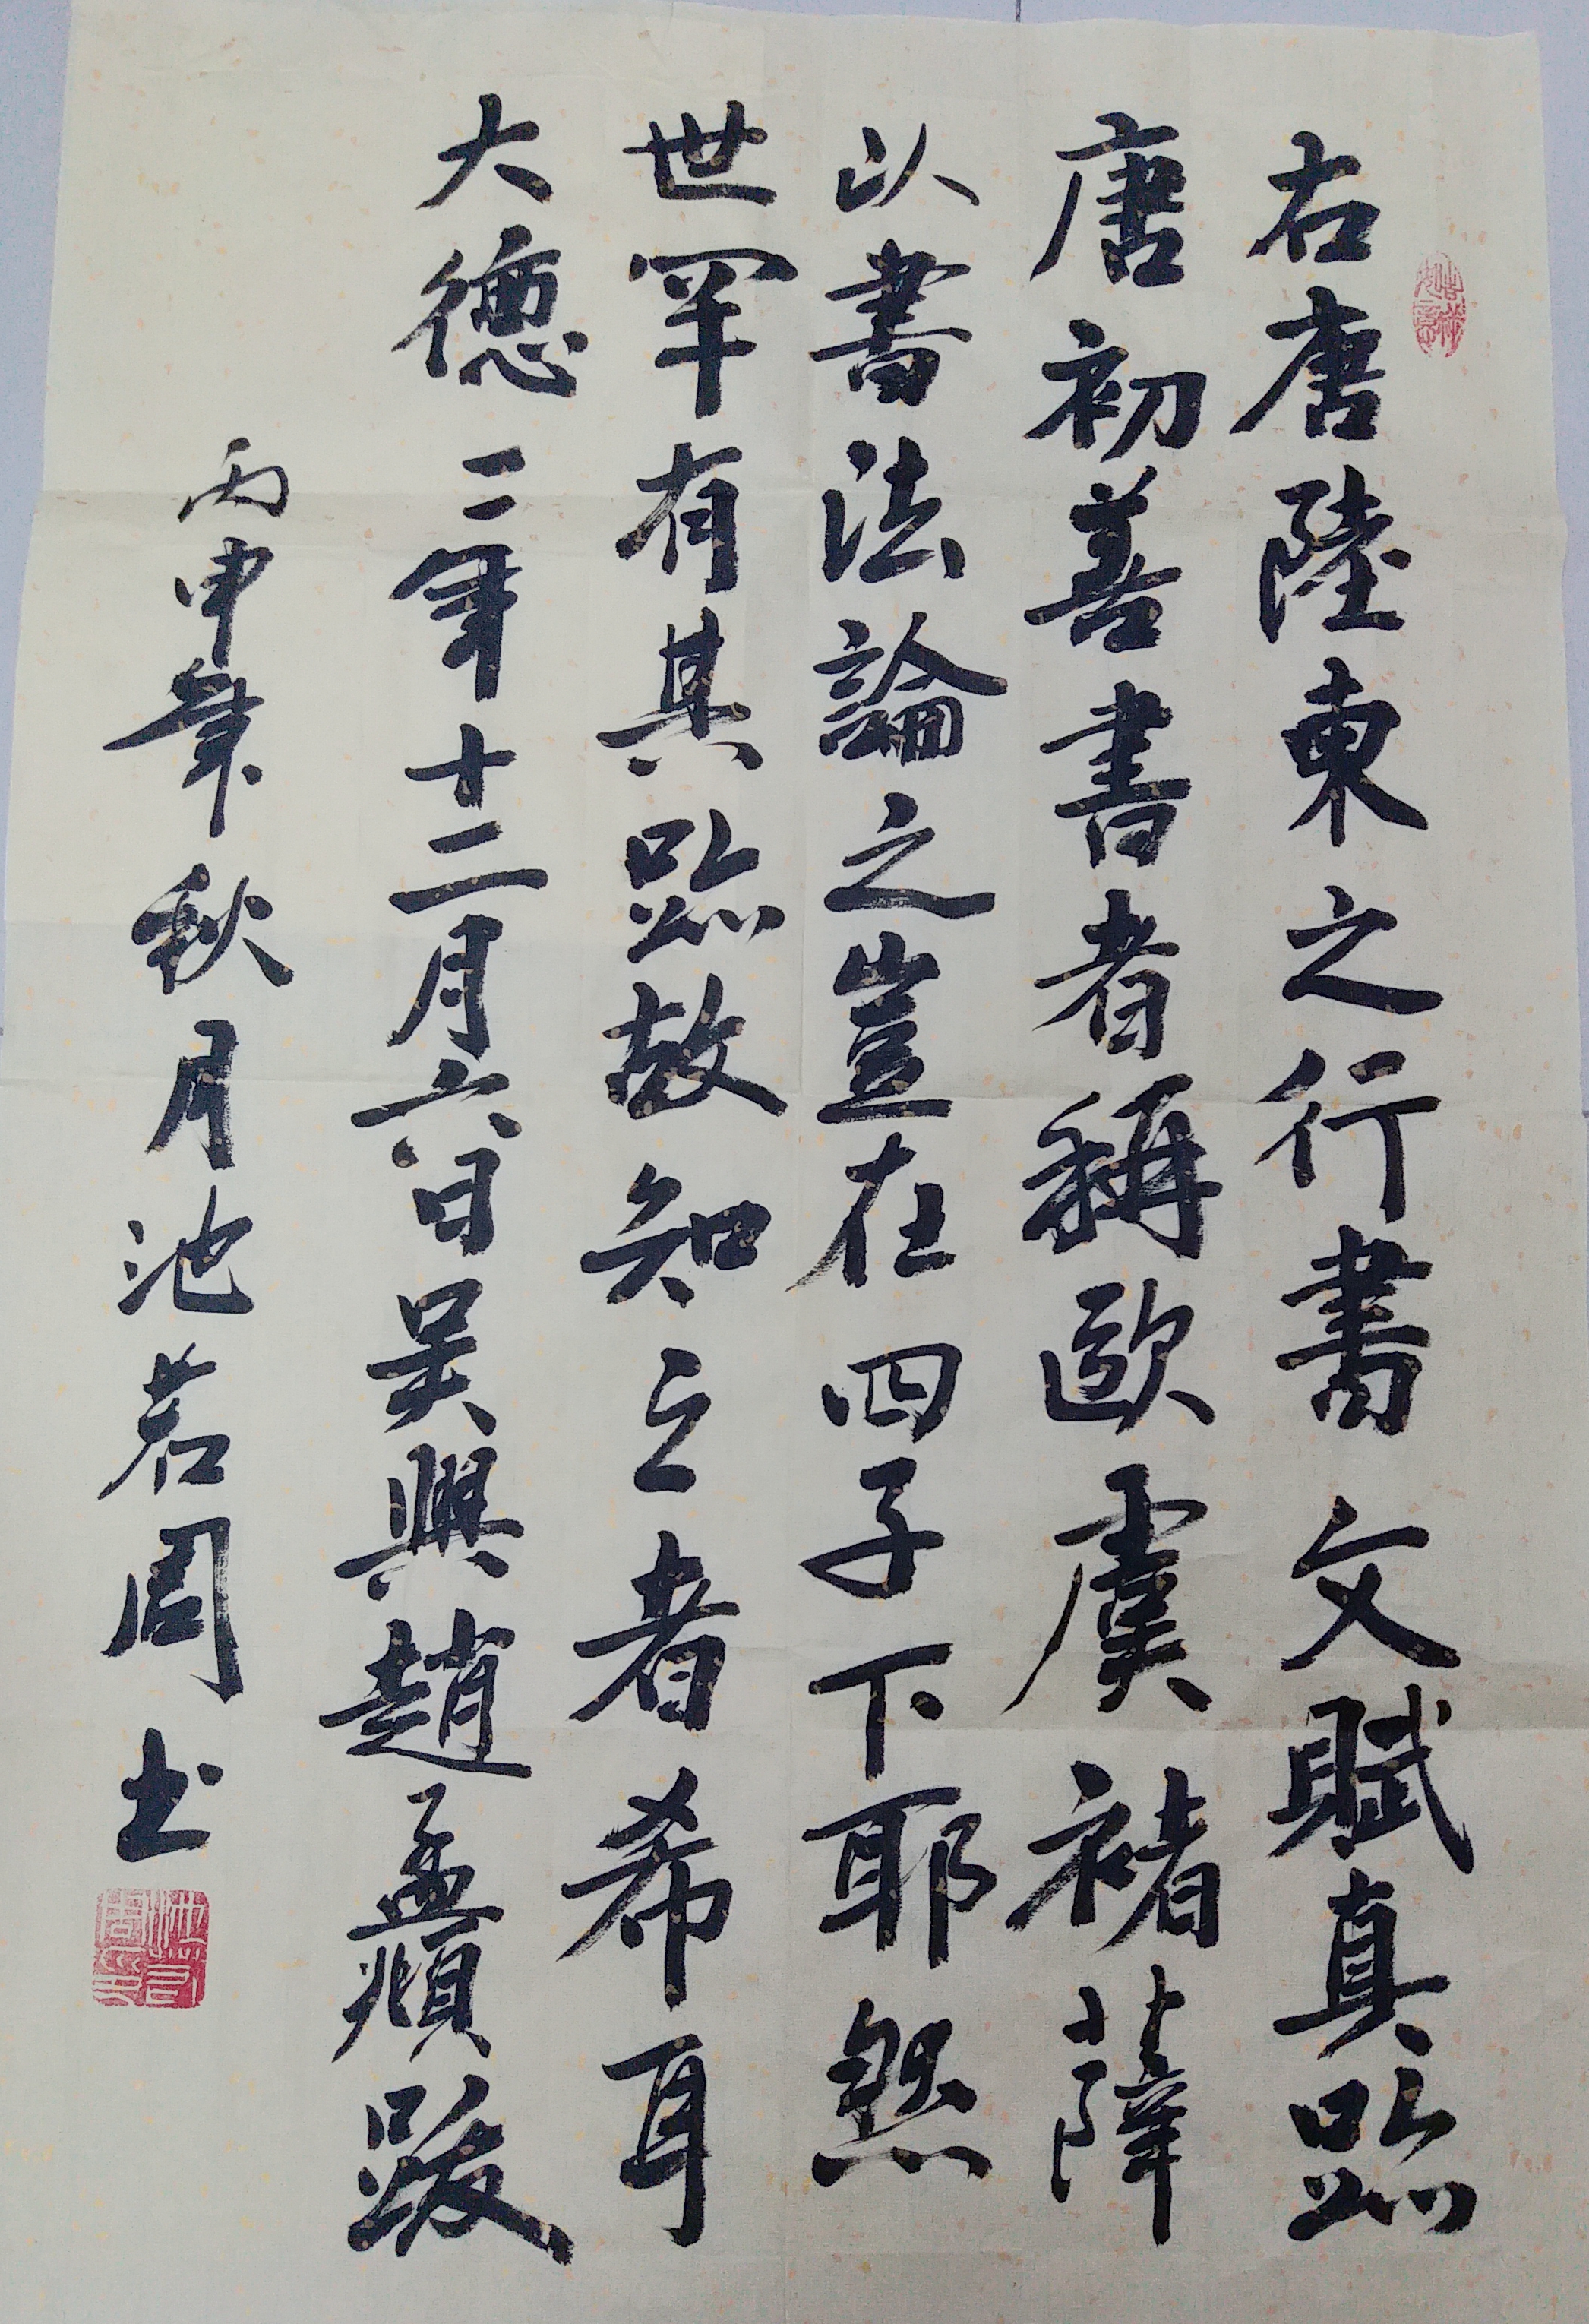 右唐陸東之行書文賦真跡
唐初善書者稱歐虞褚薛
以書法論之豈在四子下耶然
世罕有其跡故知之者希耳
大德二年十二月六日吴興趙孟頫跋
丙申年秋月池若周书
吉祥如意
池若周印